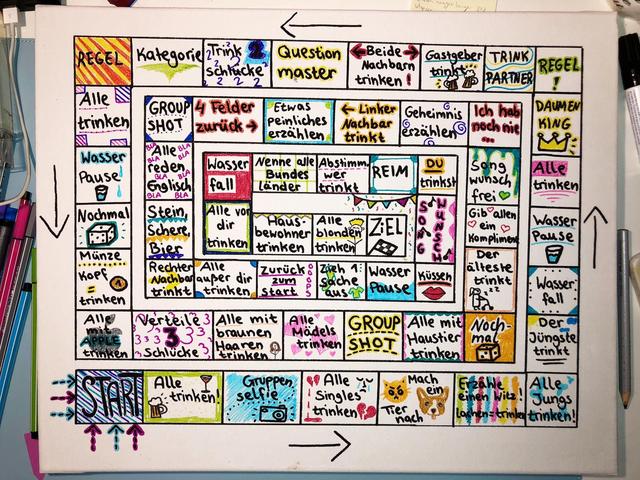 REGEL
Kategorie
Trink 2
schlücke
2 2 2
Question
master
Beide
Nachbarn
trinken!
Gastgeber
trinkt
TRINK
PARTNER
REGEL
!
Alle
trinken
GROUP
SHOT
4 Felder
zurück
Etwas
peinliches
erzählen
Linker
Nachbar
trinkt
Geheimnis
erzählen
Ich hab
noch nie...
DAUMEN
KING
Wasser
Pause
Alle
reden
Englisch
BLA
BLA
BLA
Wasser
fall
Nenne alle
Bundes
länder
Abstimm.
wer
trinkt
REIM
DU
trinkst
Song
wunsch
frei
Alle
trinken
Nochmal
Stein,
Schere,
Bier
Alle vor
dir
trinken
Haus-
bewohner
trinken
Alle
blonden
trinken
ZIEL
SONG
WUNSCH
Gib allen
ein
Kompliment
Wasser
Pause
Münze
Kopf
=
trinken
Rechter
Nachbar
trinkt
Alle
außer dir
trinken
Zurück
zum
start
Zieh 1
sache
aus
Wasser
Pause
Küssen
Der
älteste
trinkt
Wasser
fall
Alle
mit
APPLE
trinken
Verteile
3
Schlücke
Alle mit
braunen
Haaren
trinken
Alle
Mädels
trinken
GROUP
SHOT
Alle mit
Haustier
trinken
Noch-
mal
Der
Jüngste
trinkt
START
Alle
trinken!
Gruppen
selfie
Alle
Singles
trinken
Mach
ein
Tier
nach
Erzähle
einen Witz!
Lachen=trinken
Alle
Jungs
trinken!